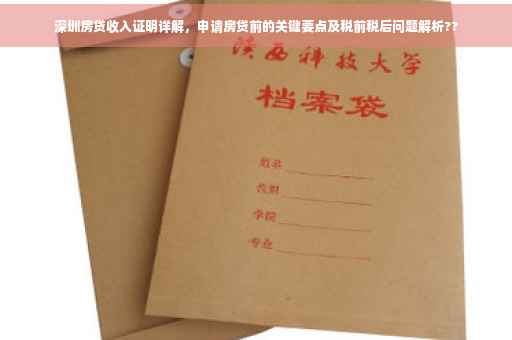 深圳房贷收入证明详解，申请房贷前的关键要点及税前税后问题解析??
陕西科技大学
档案袋
姓名
学院
专业